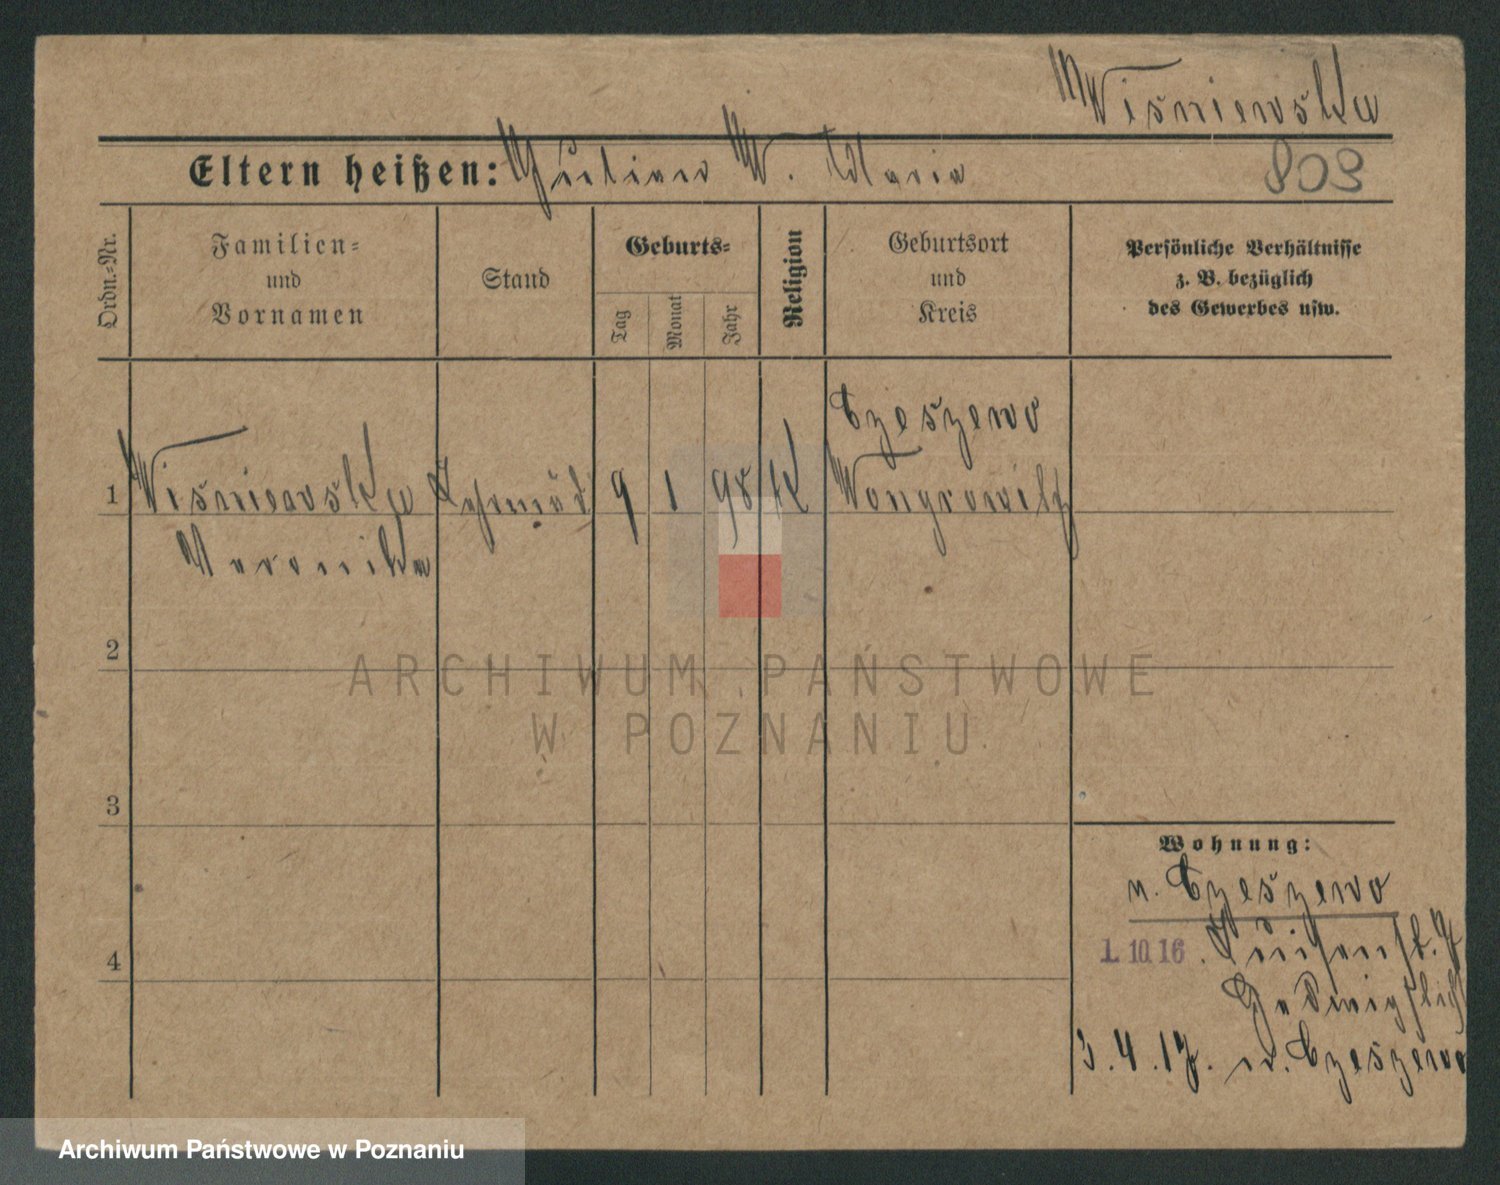 Wiśniewska
Eltern heißen: Julian W. Maria
803
Ordn.-Nr.
Familien-
und
Vornamen
Stand
Geburts-
Tag
Monat
Jahr
Religion
Geburtsort
und
Kreis
Persönliche Verhältnisse
z. B. bezüglich
des Gewerbes usw.
Czeszewo
1 Wiśniewska 9 1 98 K Wongrowitz
Veronika
2
ARCHIWUM PAŃSTWOWE
W POZNANIU
3
Wohnung:
n. Czeszewo
4
1. 10. 16.
3. 4. 17. n. Czeszewo
Archiwum Państwowe w Poznaniu